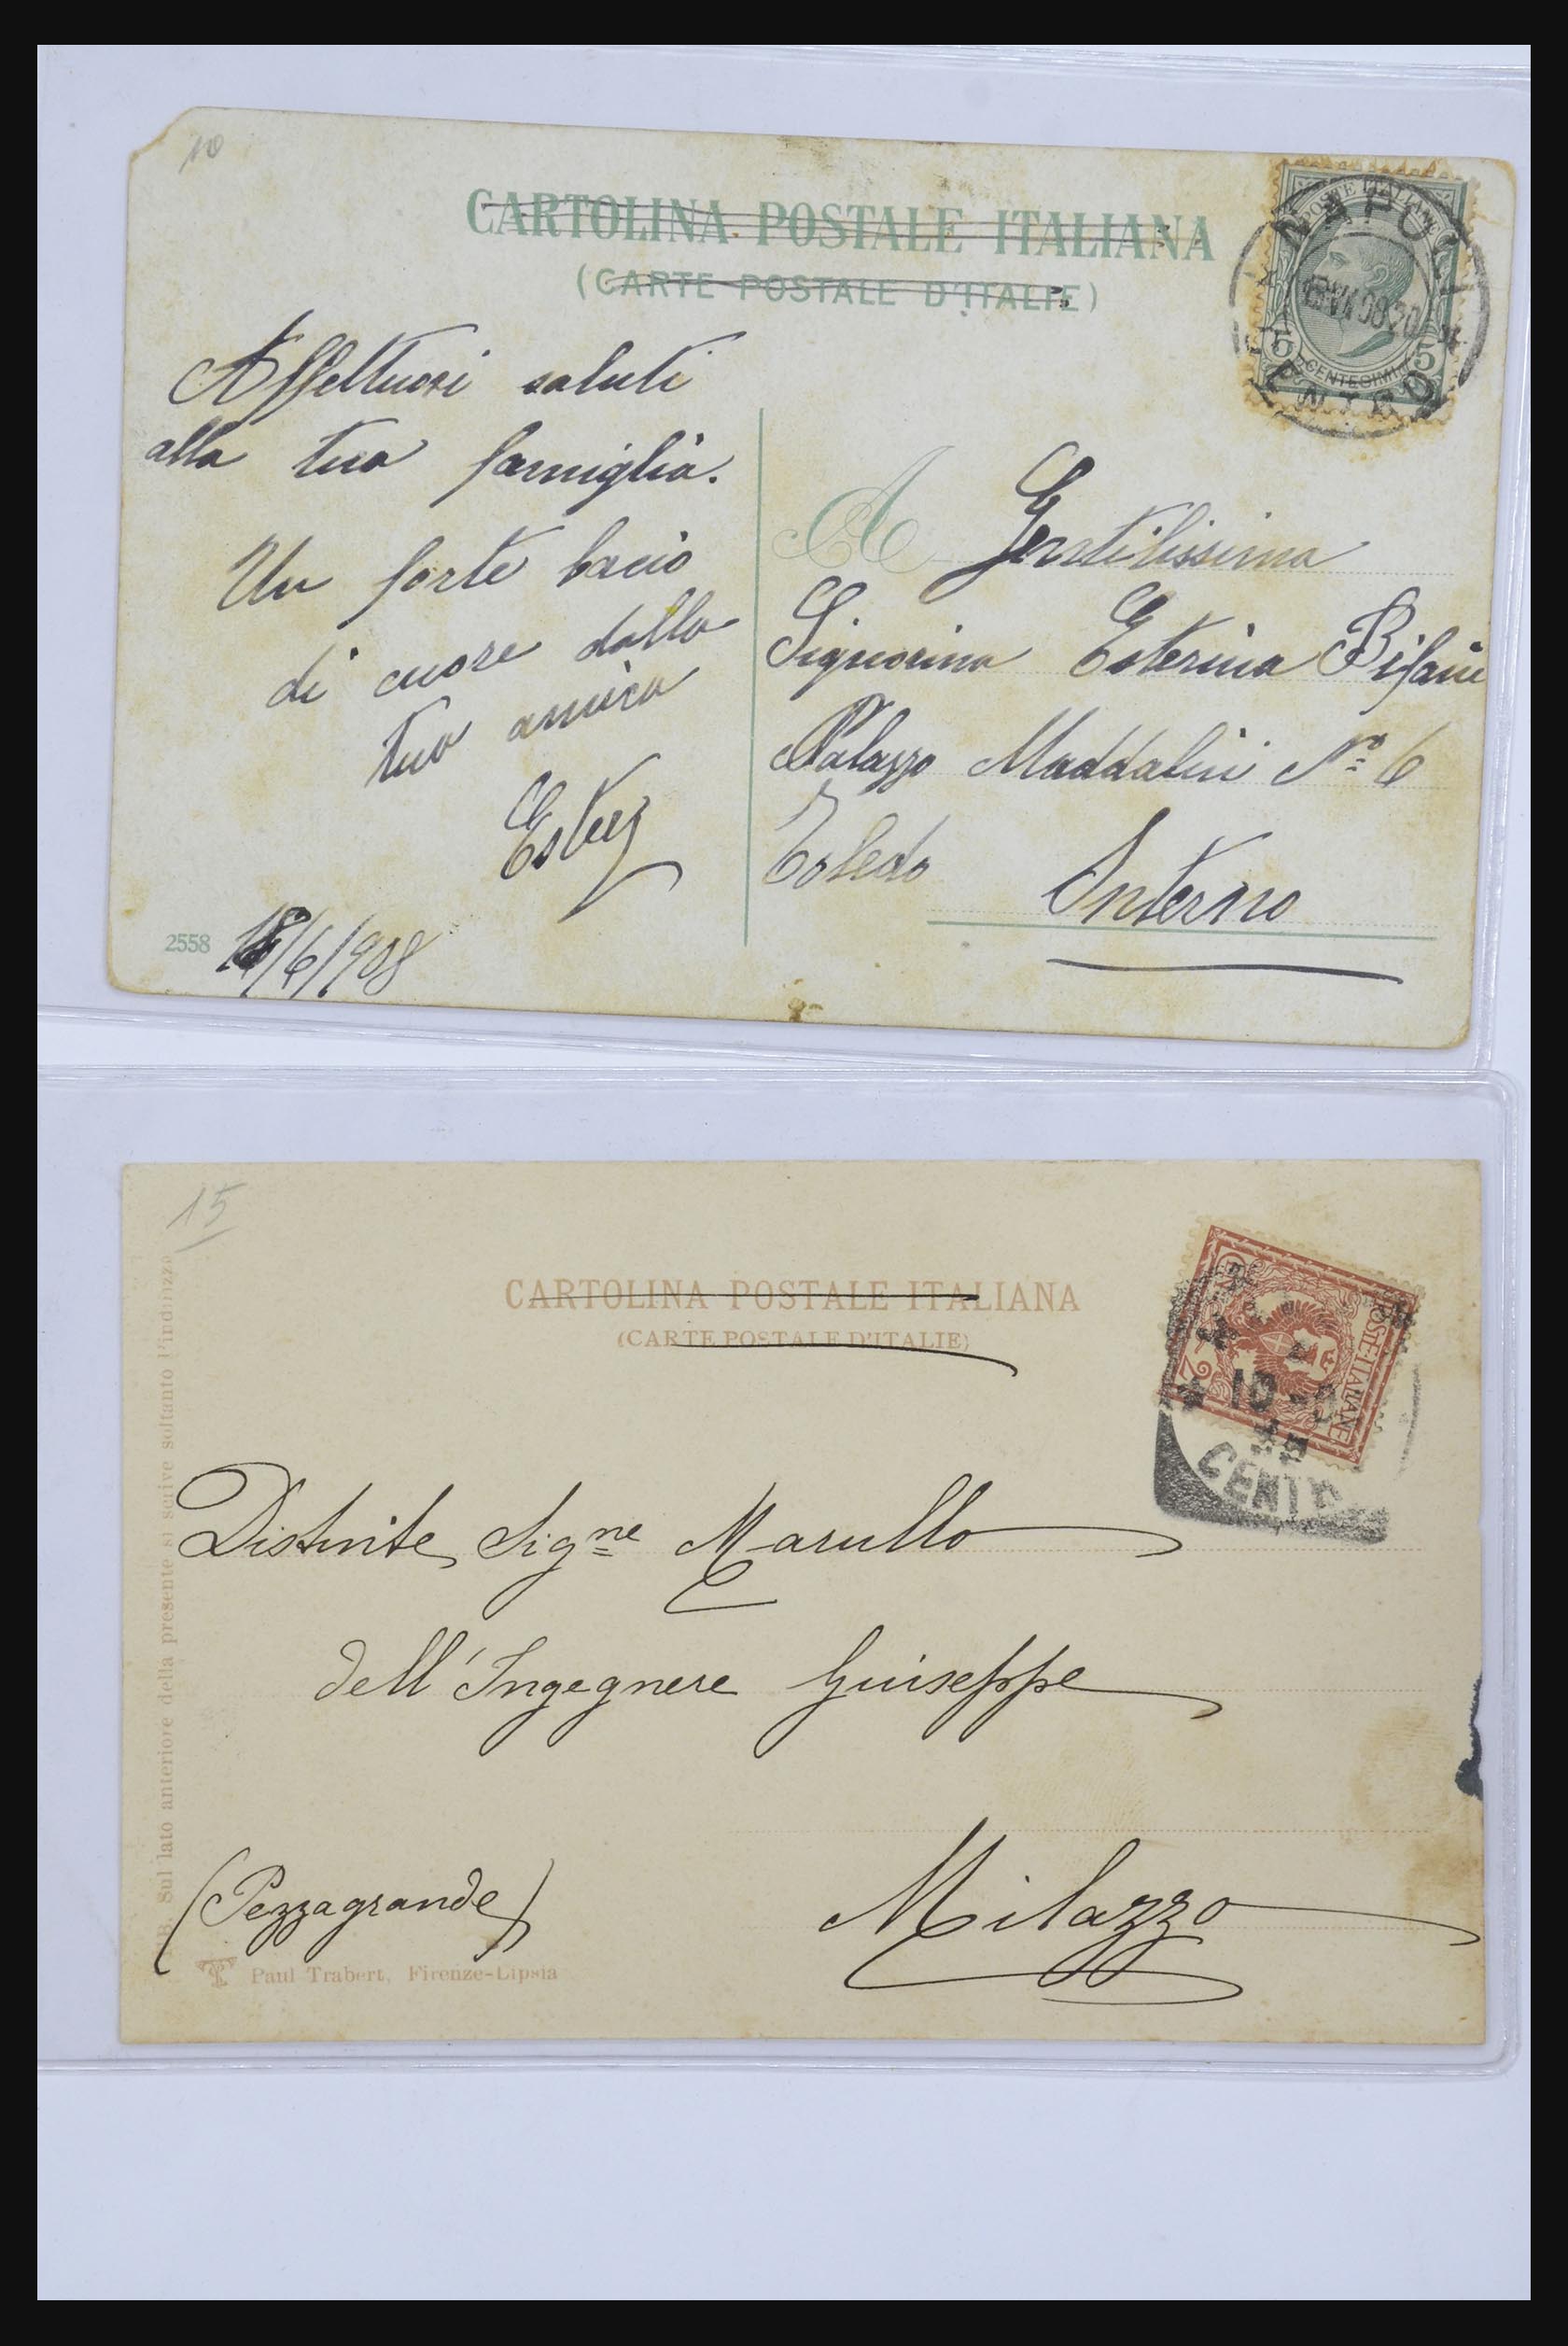 10
CARTOLINA POSTALE ITALIANA
(CARTE POSTALE D'ITALIE)
POSTE ITALIANE
NAPOLI
CENTESIMI
5 5
CENTRO
Affettuosi saluti
alla tua famiglia.
Un forte bacio
di cuore dalla
tua amica
Ester
2558
18/6/908
A Gentilissima
Signorina Esterina Bifani
Palazzo Maddalini No 6
Toledo
Interno
15
CARTOLINA POSTALE ITALIANA
(CARTE POSTALE D'ITALIE)
POSTE·ITALIANE
2
10-9
CENTR
Distinte Sig.ne Marullo
dell'Ingegnere Guiseppe
(Pezzagrande)
Milazzo
Sul lato anteriore della presente si scrive soltanto l'indirizzo
Paul Trabert, Firenze-Lipsia